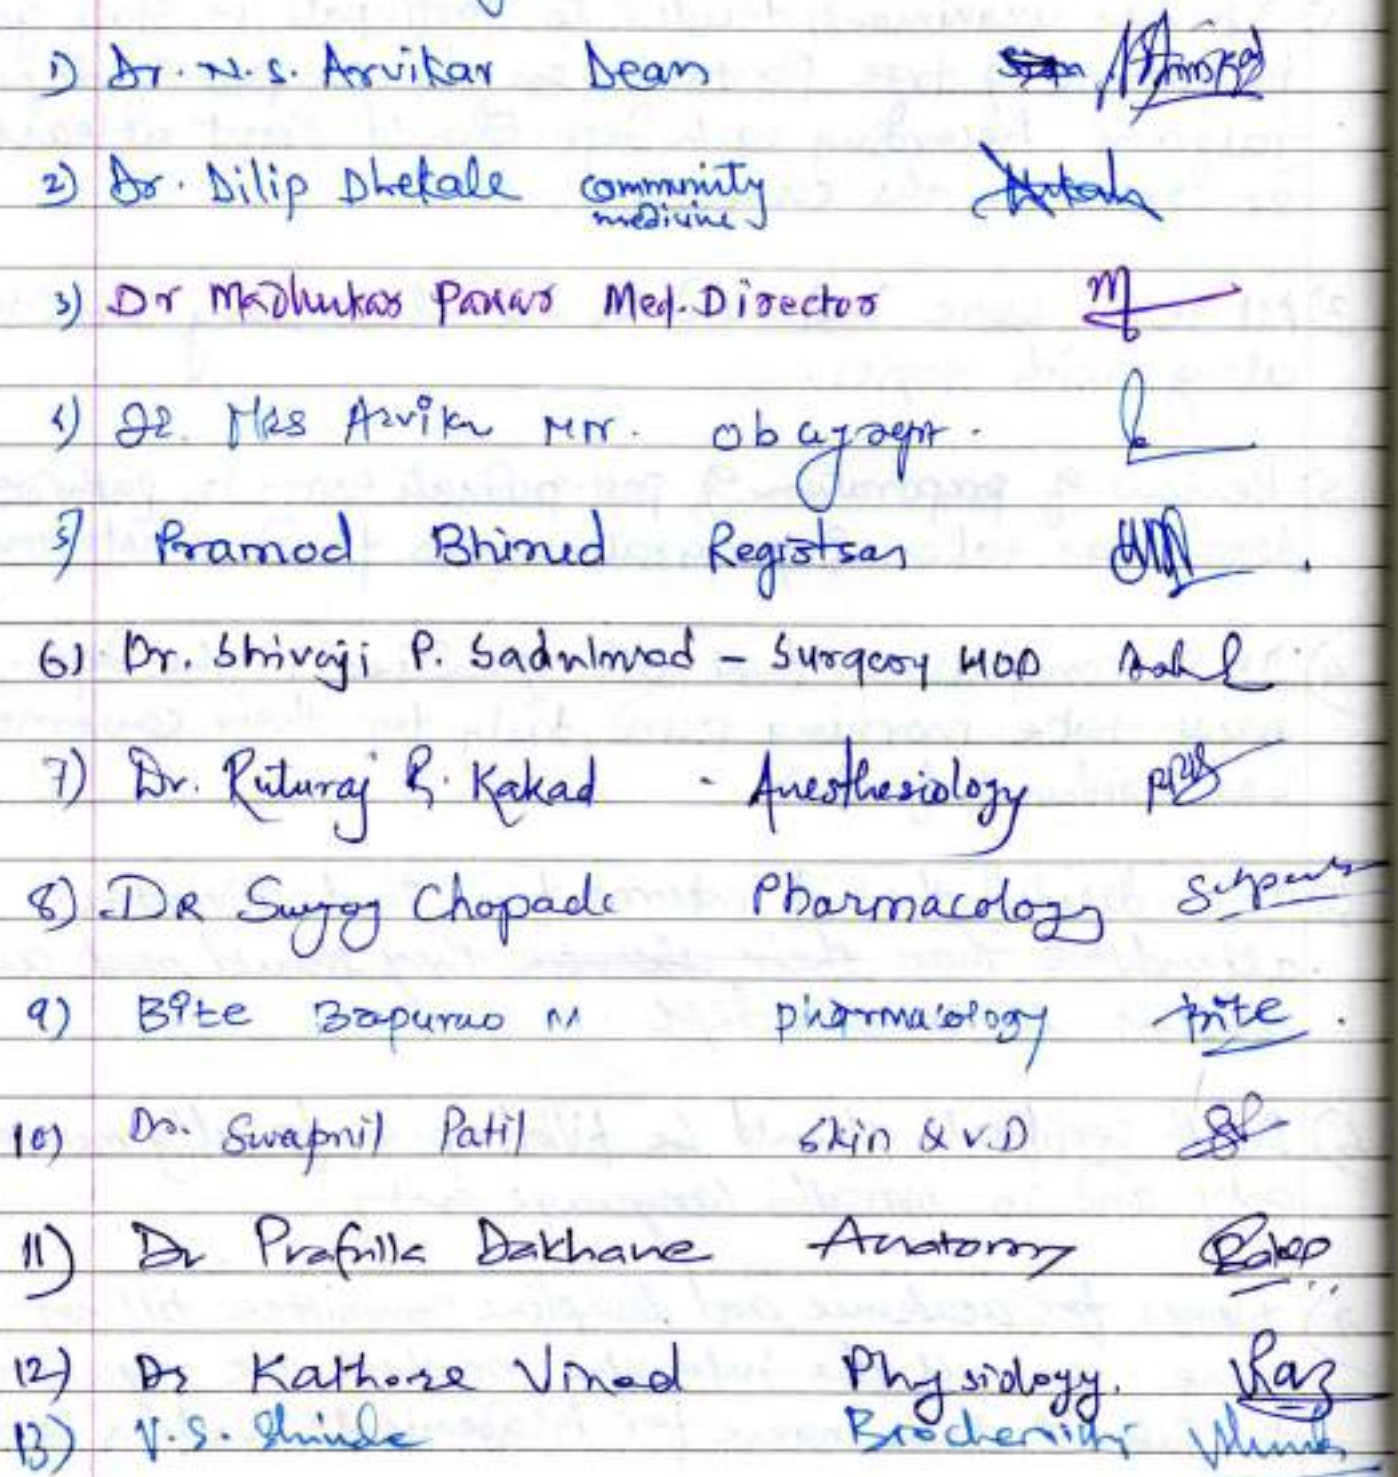 1) Dr. N. S. Arvikar Dean
2) Dr. Dilip Dhekale community medicine
3) Dr Madhukar Pawar Med. Director
4) Dr. Mrs Arvikar MN. ob gy
5) Pramod Bhirud Registrar
6) Dr. Shivaji P. Sadulwad - Surgery HOD
7) Dr. Ruturaj R. Kakad - Anesthesiology
8) DR Suyog Chopade Pharmacology
9) Bite Bapurao M pharmacology Bite
10) Dr. Swapnil Patil Skin & V.D
11) Dr Prafulla Dakhane Anatomy
12) Dr Kathore Vinod Physiology.
13) V. S. Shinde Biochemistry